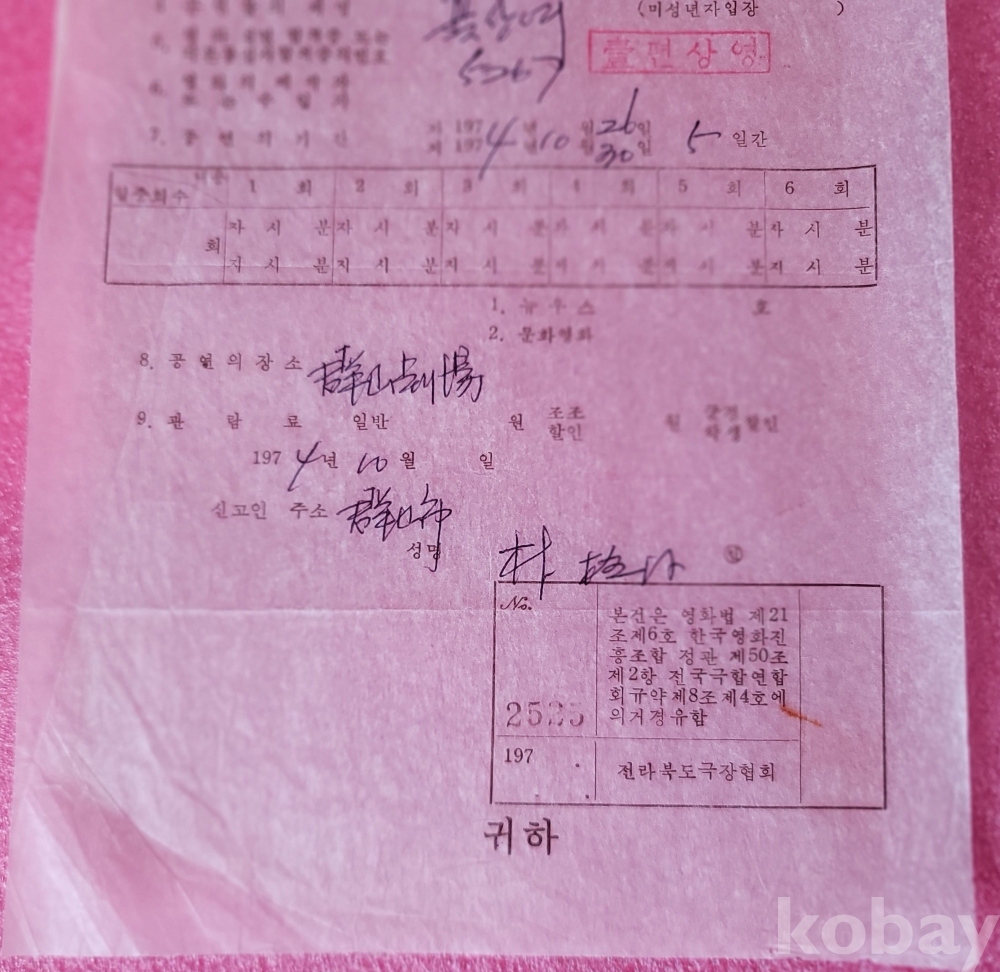 (미성년자입장 )
5267
單편상영
7. 공 연 의 기 간 자 197 4 년 10 월 26 일 5 일간
지 197 년 월 30 일
일주회수 1 회 2 회 3 회 4 회 5 회 6 회
자 시 분 자 시 분 자 시 분 자 시 분 자 시 분 자 시 분
회
지 시 분 지 시 분 지 시 분 지 시 분 지 시 분 지 시 분
1. 뉴 우 스 호
2. 문화영화
8. 공 연 의 장 소 群山劇場
9. 관 람 료 일반 원 조조 할인 원 군경 학생 할인
197 4 년 10 월 일
신고인 주소 群山市
성명 朴
No. 2525
본건은 영화법 제21
조제6호 한국영화진
흥조합 정관 제50조
제2항 전국극합연합
회규약제8조제4호에
의거경유함
197 . . .
전라북도극장협회
귀하
kobay